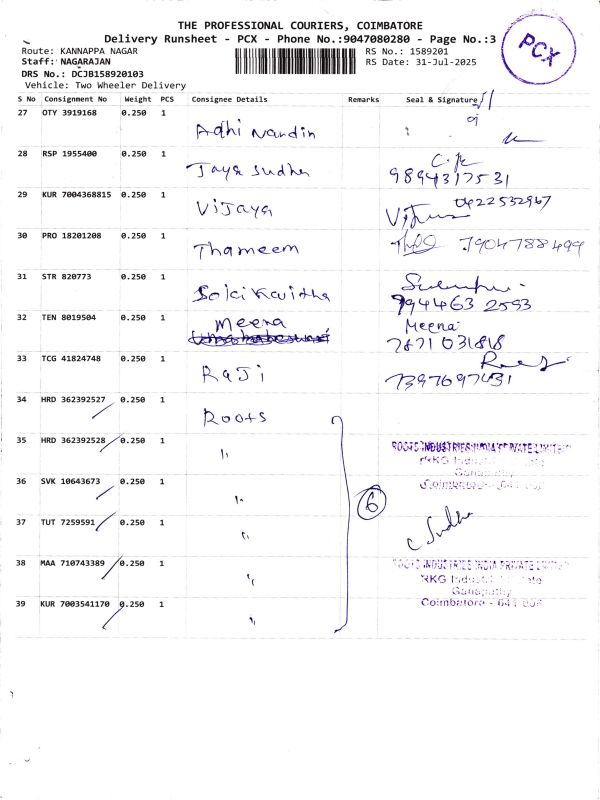 THE PROFESSIONAL COURIERS, COIMBATORE
Delivery Runsheet - PCX - Phone No.:9047080280 - Page No.:3
PCX
Route: KANNAPPA NAGAR
RS No.: 1589201
Staff: NAGARAJAN
RS Date: 31-Jul-2025
DRS No.: DCJB158920103
Vehicle: Two Wheeler Delivery
S No Consignment No Weight PCS Consignee Details Remarks Seal & Signature
27 OTY 3919168 0.250 1 Adhi Nandin
28 RSP 1955400 0.250 1 Jaya Sudha 9894317531
29 KUR 7004368815 0.250 1 Vijaya 0422532967
30 PRO 18201208 0.250 1 Thameem 7904788499
31 STR 820773 0.250 1 Kavitha 794463 2593
32 TEN 8019504 0.250 1 Meena Meena
7871031818
33 TCG 41824748 0.250 1 Raji 7397697431
34 HRD 362392527 0.250 1 Roots
35 HRD 362392528 0.250 1 " ROOTS INDUSTRIES INDIA PRIVATE LIMITED
RKG
Ganapathy
36 SVK 10643673 0.250 1 " Coimbatore - 641
6
37 TUT 7259591 0.250 1 " Sudha
38 MAA 710743389 0.250 1 " ROOTS INDUSTRIES INDIA PRIVATE LIMITED
RKG
Ganapathy
39 KUR 7003541170 0.250 1 " Coimbatore - 641 006